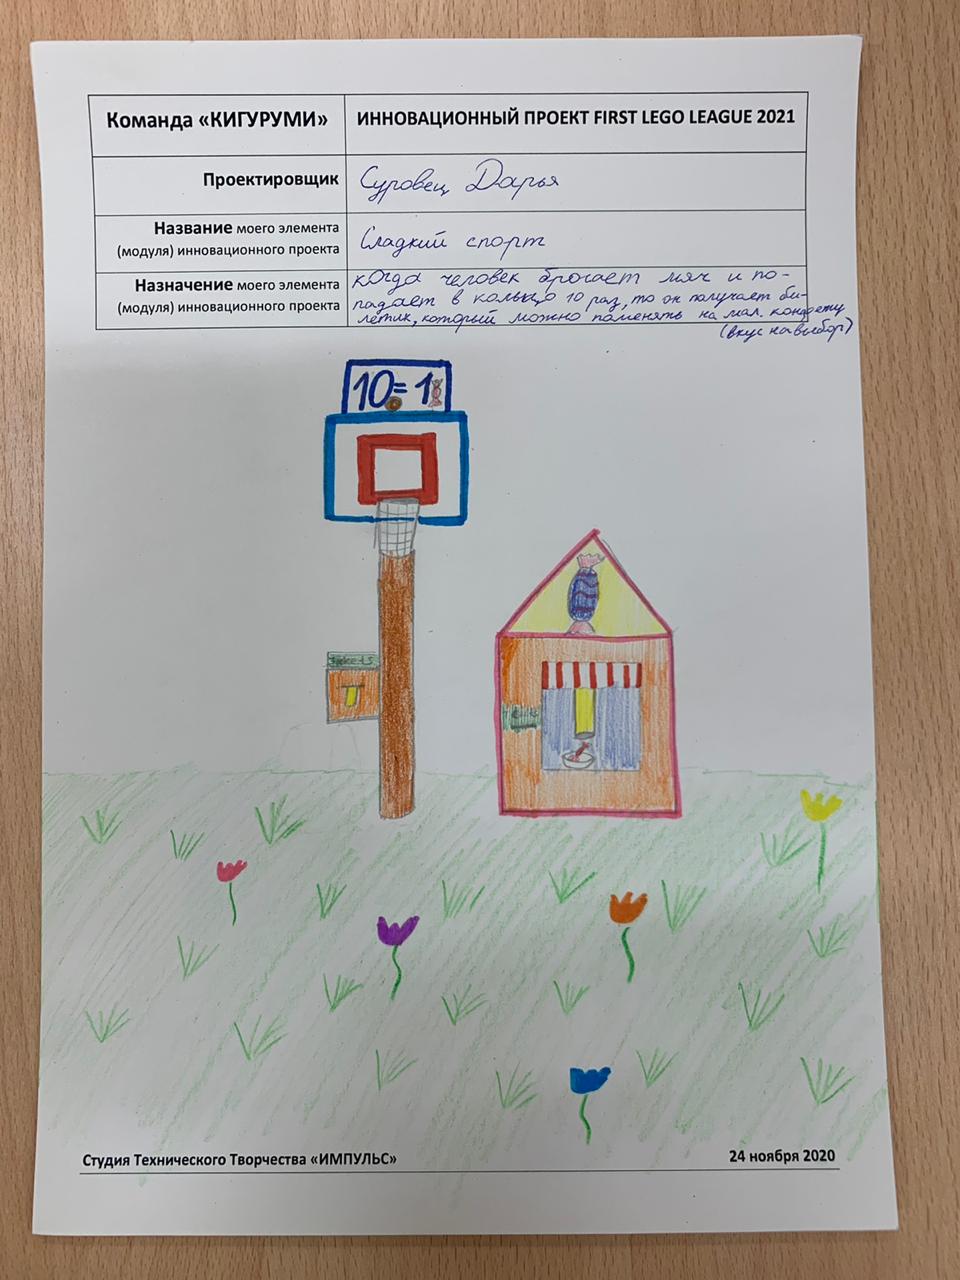 Команда «КИГУРУМИ»
ИННОВАЦИОННЫЙ ПРОЕКТ FIRST LEGO LEAGUE 2021
Проектировщик
Суровец Дарья
Название моего элемента
(модуля) инновационного проекта
Сладкий спорт
Назначение моего элемента
(модуля) инновационного проекта
когда человек бросает мяч и по-
падает в кольцо 10 раз, то он получает би-
летик, который можно поменять на мал. конфету
(вкус на выбор)
10= 1
tickets
Студия Технического Творчества «ИМПУЛЬС»
24 ноября 2020